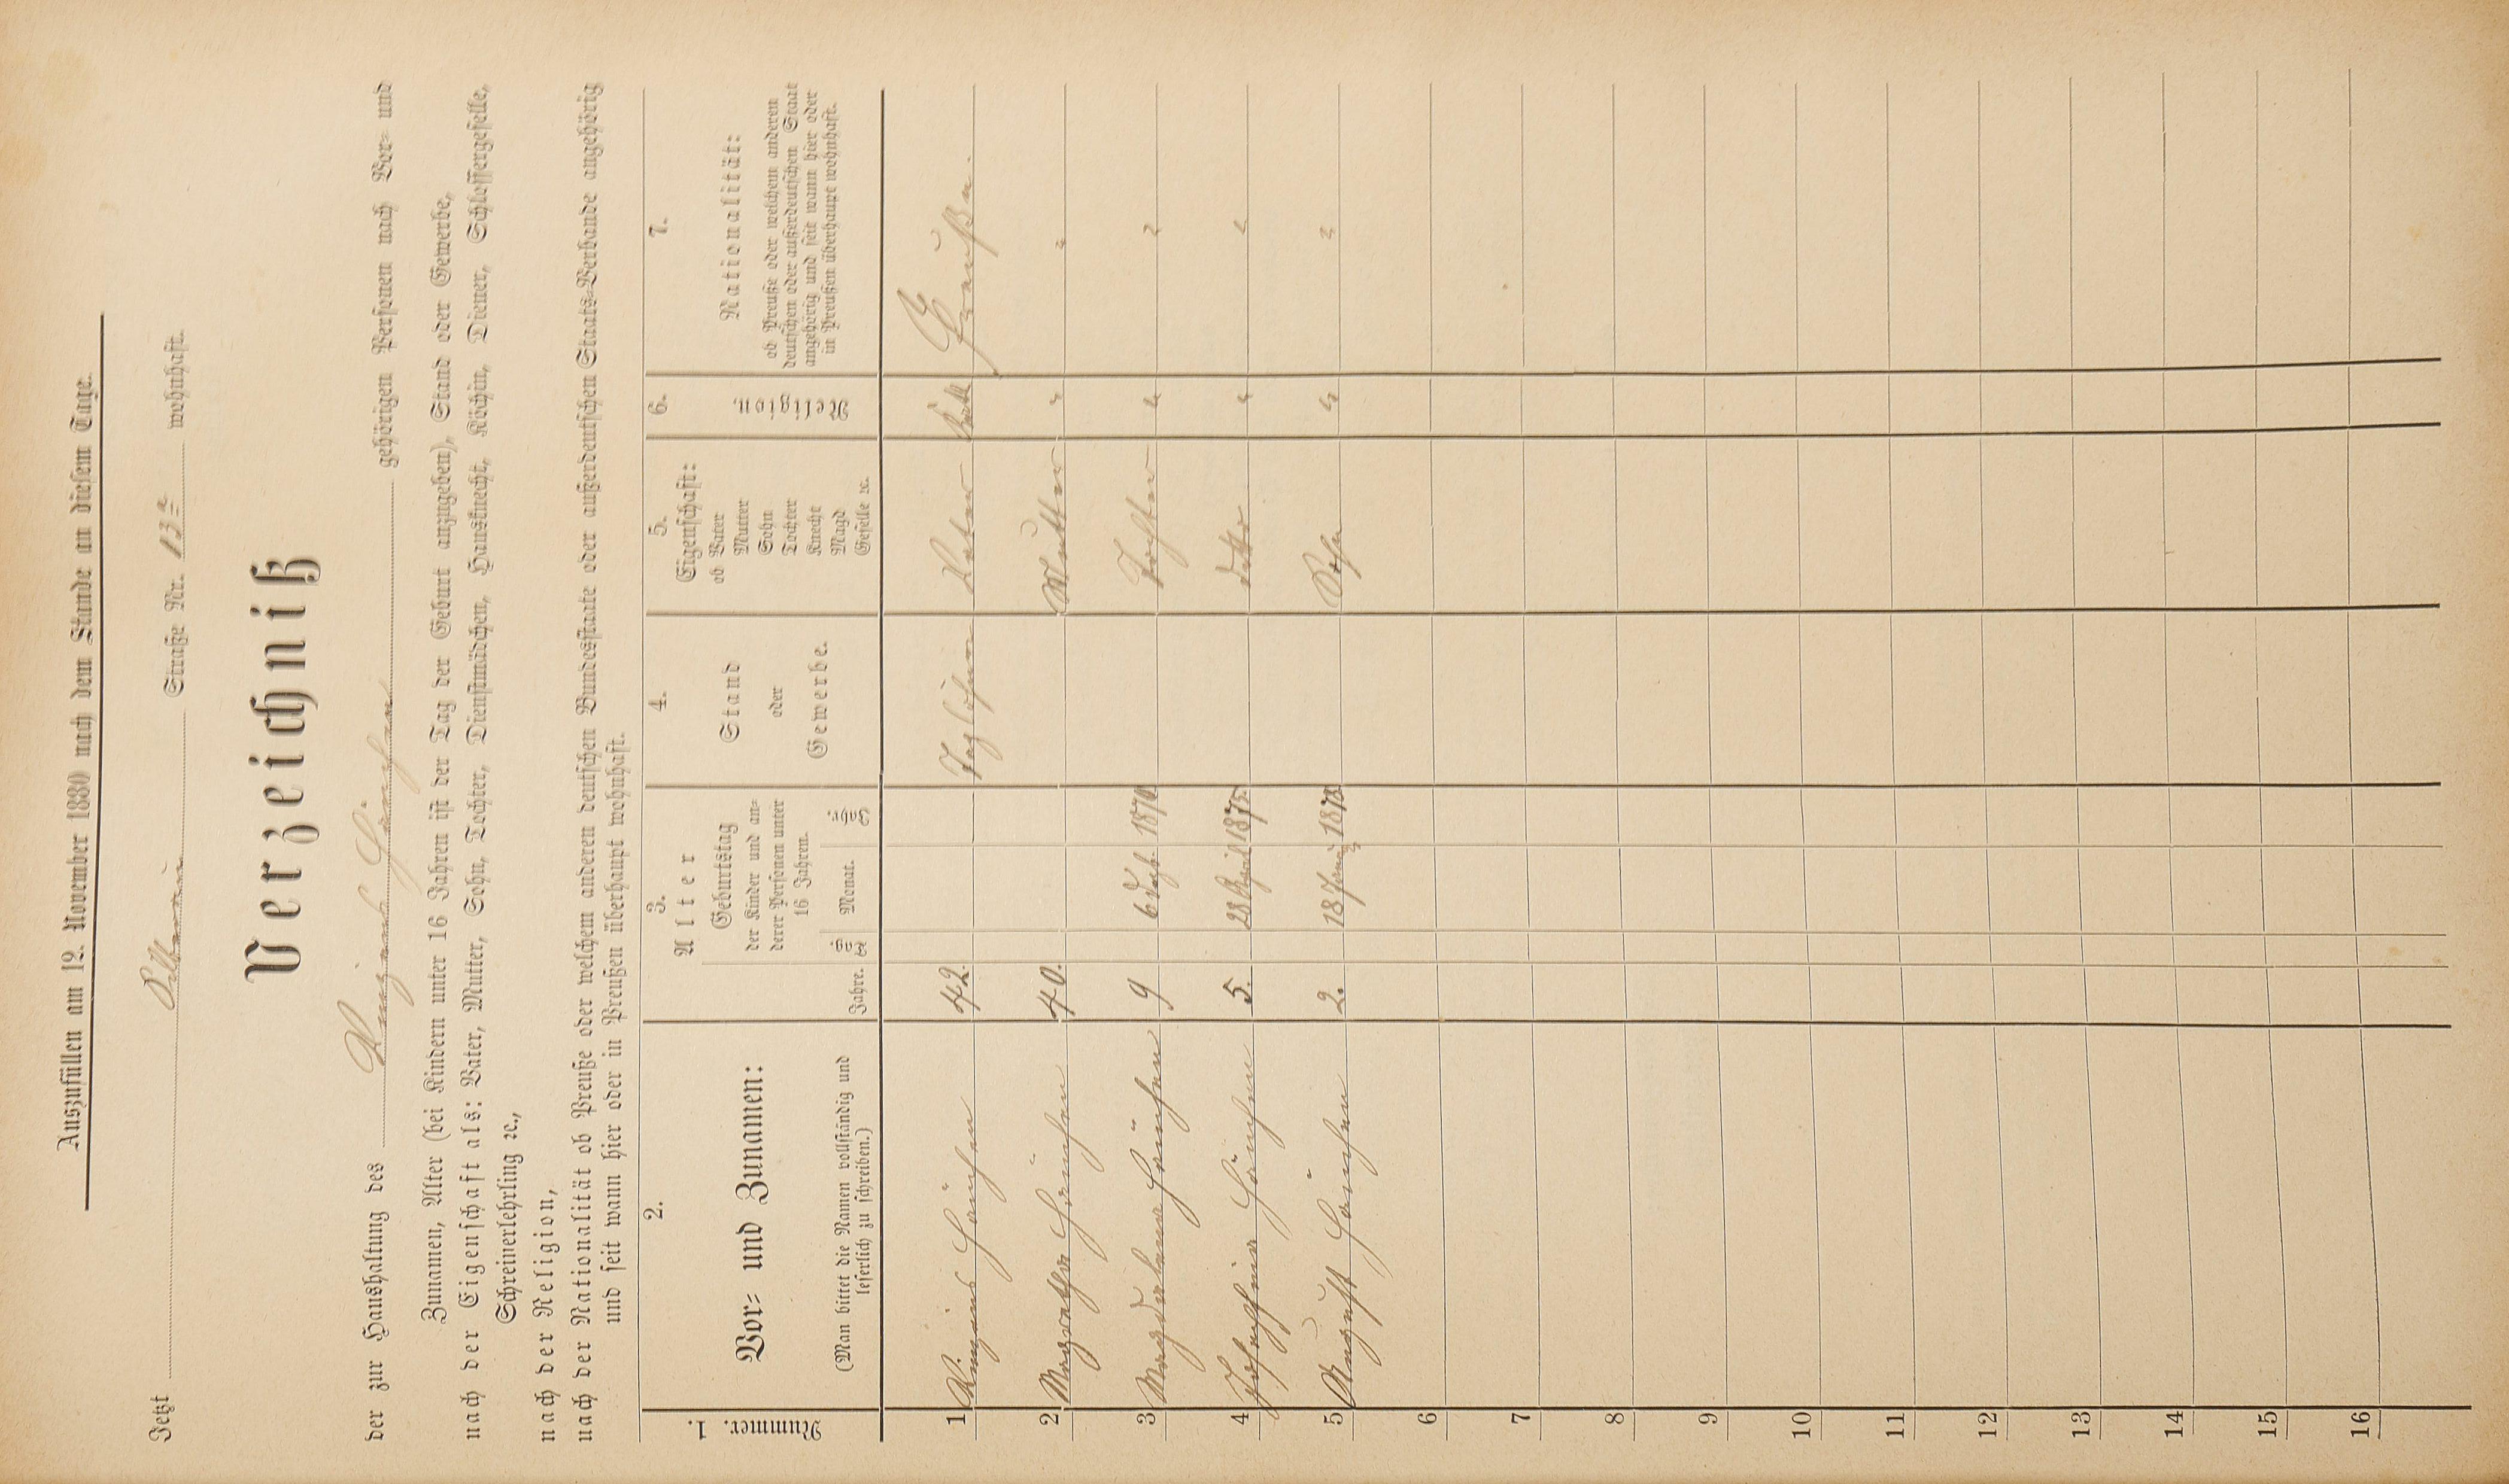 Auszufüllen am 12. November 1880 nach dem Stande an diesem Tage.
Jetzt Straße Nr. 13a wohnhaft.
Verzeichniß
der zur Haushaltung des Hünchen gehörigen Personen nach Vor- und
Zunamen, Alter (bei Kindern unter 16 Jahren ist der Tag der Geburt anzugeben), Stand oder Gewerbe,
nach der Eigenschaft als: Vater, Mutter, Sohn, Tochter, Dienstmädchen, Hausknecht, Köchin, Diener, Schlossergeselle,
Schreinerlehrling ꝛc.,
nach der Religion,
nach der Nationalität ob Preuße oder welchem anderen deutschen Bundesstaate oder außerdeutschen Staats-Verbande angehörig
und seit wann hier oder in Preußen überhaupt wohnhaft.
Nummer. 1.
2.
Vor- und Zunamen:
(Man bittet die Namen vollständig und
leserlich zu schreiben.)
3.
Alter
Jahre.
Geburtstag
der Kinder und an-
derer Personen unter
16 Jahren.
Tag Monat. Jahr.
4.
Stand
oder
Gewerbe.
5.
Eigenschaft:
ob Vater
Mutter
Sohn
Tochter
Knecht
Magd
Geselle ꝛc.
6.
Religion.
7.
Nationalität:
ob Preuße oder welchem anderen
deutschen oder außerdeutschen Staat
angehörig und seit wann hier oder
in Preußen überhaupt wohnhaft.
1 Hünchen 42. Taglöhner Vater Kath Preußen.
2 Hünchen 40. Mutter " "
3 Magdalena Hünchen 9 6 1870 Tochter " "
4 Josephine Hünchen 5. 28 April 1875. ditto " "
5 August Hünchen 2. 18 1878 Sohn " "
6
7
8
9
10
11
12
13
14
15
16